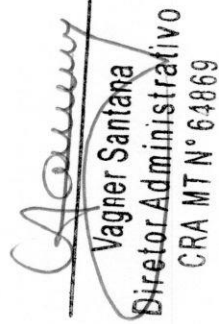 Vagner Santana
Diretor Administrativo
CRA MT N° 64869